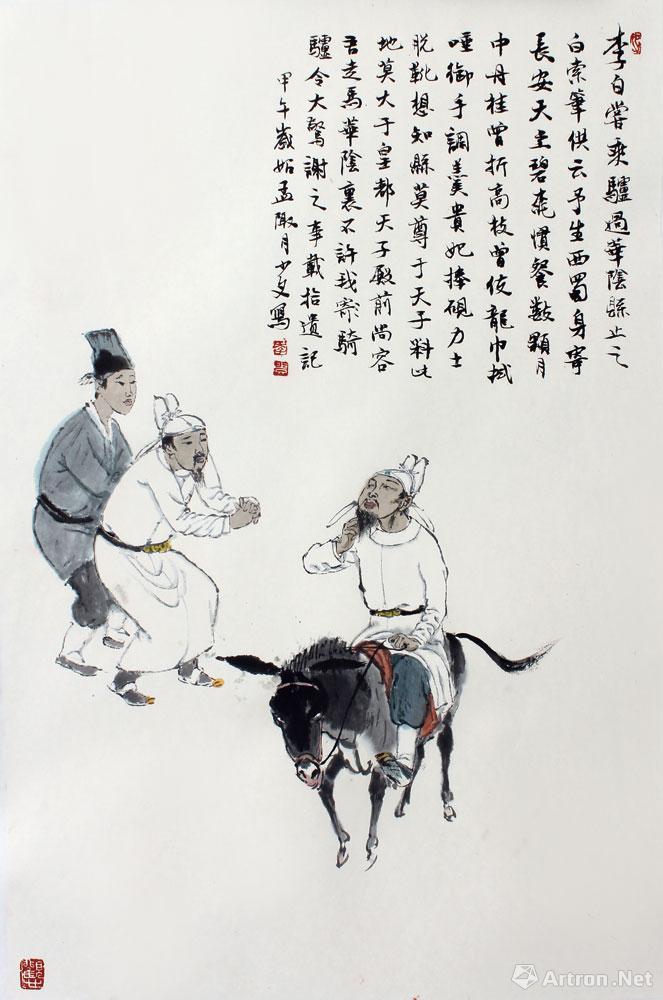 李白嘗乘驢過華陰縣止之
白索筆供云予生西蜀身寄
長安天上碧桃慣餐數顆月
中丹桂曾折高枝曾使龍巾拭
唾御手調羹貴妃捧硯力士
脱靴想知縣莫尊于天子料此
地莫大于皇都天子殿前尚容
吾走馬華陰裏不許我寄騎
驢令大驚謝之事載拾遺記
甲午歲始孟陬月少文寫
Artron.Net